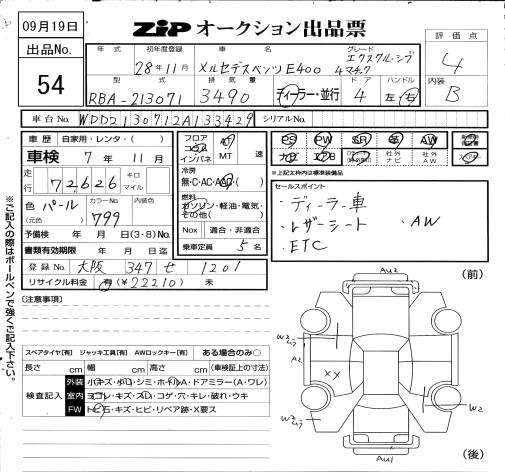 09月19日
出品No.
54
ZIP オークション出品票
評価点
4
内装
B
年式 初年度登録 車名 グレード
28年11月 メルセデスベンツ E400 4マチック エクスクルーシブ
型式 排気量 ドア ハンドル
RBA-213071 3490 ディーラー・並行 4 左・右
車台No. WDD2130712A133429 シリアルNo.
車歴 自家用・レンタ・( )
車検 7年 11月
走行 72,626 キロ マイル
色(元色) パール カラーNo. 799 内装色
予備検 年 月 日(3・8)No.
書類有効期限 年 月 日
登録No. 大阪 347 せ 1201
リサイクル料金 有(¥22210) 未
フロア コラム インパネ AT MT 速
冷房 無・C・AC・AAC( )
燃料 ガソリン・軽油・電気・その他( )
Nox 適合・非適合
乗車定員 5名
PS PW SR 革 AW
ナビ TV 社外ナビ 社外AW
※上記太枠内は標準装備品
セールスポイント
・ディーラー車
・レザーシート ・AW
・ETC
※ご記入の際はボールペンで強くご記入下さい。
(注意事項)
スペアタイヤ[有] ジャッキ工具[有] AWロックキー[有] ある場合のみ○
長さ cm 幅 cm 高さ cm (車検証上の寸法)
検査記入
外装 小キズ・小凹・シミ・ホイルA・ドアミラー(A・ワレ)
室内 ヨゴレ・キズ・スレ・コゲ・穴・キレ・破れ・ウキ
FW トビ石・キズ・ヒビ・リペア跡・X要ス
(前)
AU2
W2
ムラ
A2
XX
W3
ムラ
W2
AU1
(後)